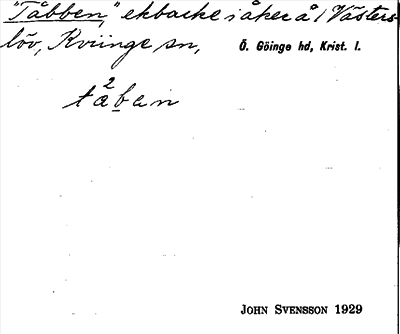 "Tåbben," ekbacke i åker å 1 Västers-
löv, Kviinge sn, Ö. Göinge hd, Krist. l.
2
tåban
JOHN SVENSSON 1929